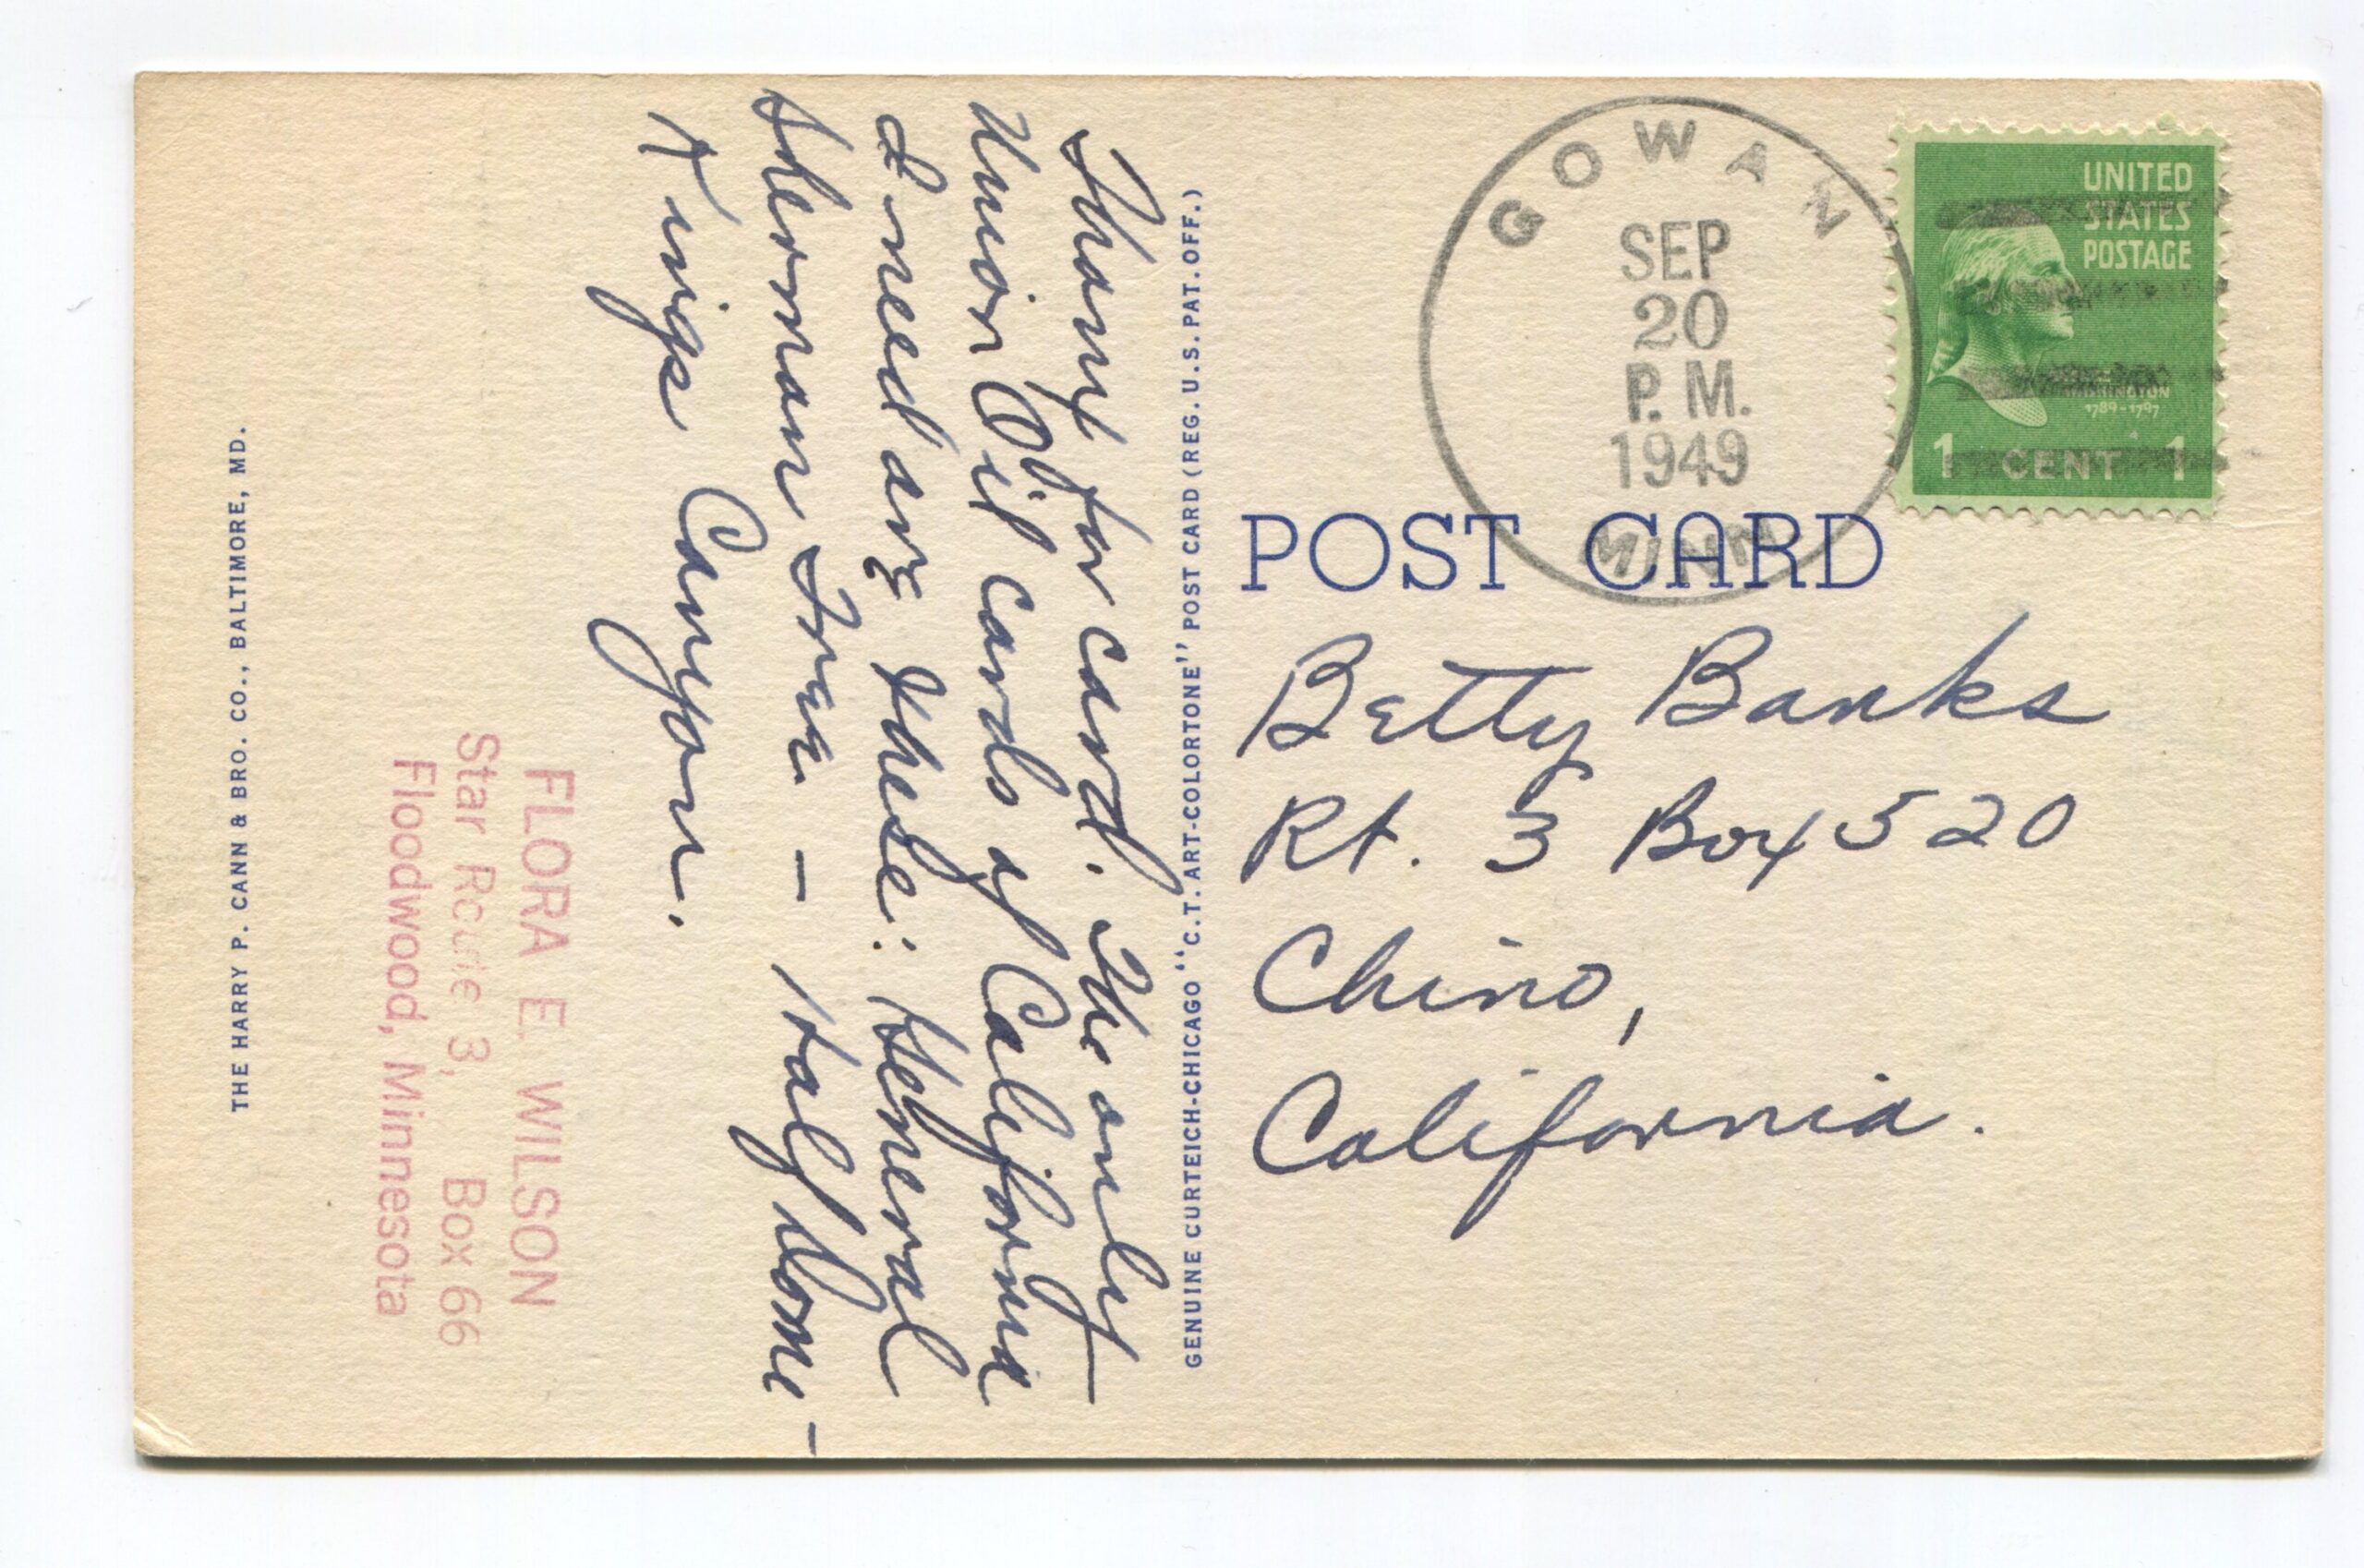 Thanx for card. The only
Union Oil cards of California
I need are these: General
Sherman Tree - Half Dome -
Kings Canyon.
FLORA E. WILSON
Star Route 3, Box 66
Floodwood, Minnesota
THE HARRY P. CANN & BRO. CO., BALTIMORE, MD.
GENUINE CURTEICH-CHICAGO "C.T. ART-COLORTONE" POST CARD (REG. U.S. PAT. OFF.)
GOWAN
SEP
20
P. M.
1949
MINN
UNITED
STATES
POSTAGE
WASHINGTON
1789-1797
1 CENT 1
POST CARD
Betty Banks
Rt. 3 Box 520
Chino,
California.